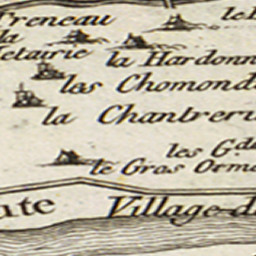 Treneau
le
la
Metairie
la Hardonn
les Chomond
la Chantreri
les G.des
le Gros Orme
ute Village d